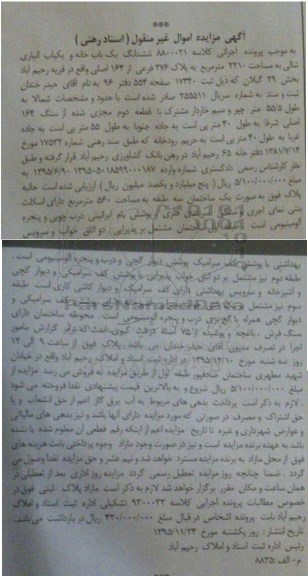 آگهی مزایده اموال غیر منقول (اسناد رهنی)
به موجب پرونده اجرائی کلاسه ۸۸۰۰۰۲۱ ششدانگ یک باب خانه و یکباب انباری
شالی به مساحت ۲۲۱۰ مترمربع به پلاک ۲۷۶ فرعی از ۱۶۴ اصلی واقع در قریه رحیم آباد
بخش ۲۹ گیلان که ذیل ثبت ۱۷۳۴۰ صفحه ۵۵۴ دفتر ۹۶ به نام آقای حیدر خندان
ثبت و سند به شماره سریال ۲۵۵۵۱۱ صادر شده است با حدود و مشخصات شمالا به
طول ۵۵/۵ متر چپر و سیم خاردار مشترک با قطعه دوم مجزی شده از سنگ ۱۶۴
اصلی شرقا به طول ۴۰ متر پی است به جاده جنوبا به طول ۵۵ متر پی است به جاده
غربا به طول ۴۰ متر پی است به حریم رودخانه که طبق سند رهنی شماره ۱۷۵۳۲ مورخ
۱۳۸۱/۷/۱۴ دفتر خانه ۶۵ رحیم آباد در رهن بانک کشاورزی رحیم آباد قرار گرفته و طبق
نظر کارشناس رسمی دادگستری شماره وارده
مبلغ ۵/۱۰۰/۰۰۰/۰۰۰ ریال ( پنج میلیارد و یکصد میلیون ریال ) ارزیابی شده است حالیه
پلاک فوق به صورت یک ساختمان سه طبقه به مساحت ۵۶۰ مترمربع دارای اسکلت
بتنی نمای آجری
آلومینیومی است
بهداشتی با پوشش کف سرامیک پوشش دیوار گچی و درب و پنجره آلومینیومی است.
طبقه دوم نیز مشتمل بر دو اتاق خواب پذیرایی با پوشش کف سرامیک و دیوار گچی
و آشپزخانه و سرویس بهداشتی دارای کف سرامیک و دیوار کاشی کاری است طبقه
سوم نیز مشتمل بر
دیوار گچی همراه با گچ بری درب و پنجره آلومینیومی است. محوطه ساختمان دارای
سنگ فرش
اجرا در تصرف مدیون آقای حیدر خندان می باشد. پلاک فوق از ساعت ۹ الی ۱۲
روز سه شنبه مورخ ۱۳۹۵/۱۲/۱۰ در اداره ثبت اسناد و املاک رحیم آباد واقع در خیابان
شهید مطهری ساختمان طبقه اول از طریق مزایده به فروش می رسد مزایده از
مبلغ ۵/۱۰۰/۰۰۰/۰۰۰ ریال شروع و به بالاترین قیمت پیشنهادی نقدا فروخته می شود
. لازم به ذکر است پرداخت بدهی های مربوط به آب برق گاز اعم از حق انشعاب و یا
حق اشتراک و مصرف در صورتی که مورد مزایده دارای آنها باشد و نیز بدهی های مالیاتی
و عوارض شهرداری و غیره تا تاریخ مزایده اعم از اینکه رقم قطعی آن معلوم شده یا نشده
باشد به عهده برنده مزایده است و نیز در صورت وجود مازاد وجوه پرداختی بابت هزینه های
فوق از محل مازاد به برنده مزایده مسترد خواهد شد و نیم عشر و حق مزایده نقدا وصول می
گردد. ضمنا چنانچه روز مزایده تعطیل رسمی گردد مزایده روز اداری بعد از تعطیلی در
همان ساعت و مکان مقرر برگزار خواهد شد لازم به ذکر است مازاد پلاک ثبتی فوق در
خصوص مطالبات پرونده اجرایی کلاسه ۹۳۰۰۰۳۲ تشکیلی اداره ثبت اسناد و املاک
رحیم آباد بابت پرونده اشخاص در قبال مبلغ ۴۲۰/۰۰۰/۰۰۰ ریال در بازداشت می باشد.
تاریخ انتشار : روز یکشنبه مورخ ۱۳۹۵/۱۱/۲۴
رئیس اداره ثبت اسناد و املاک رحیم آباد
م - الف : ۸۸۳۵